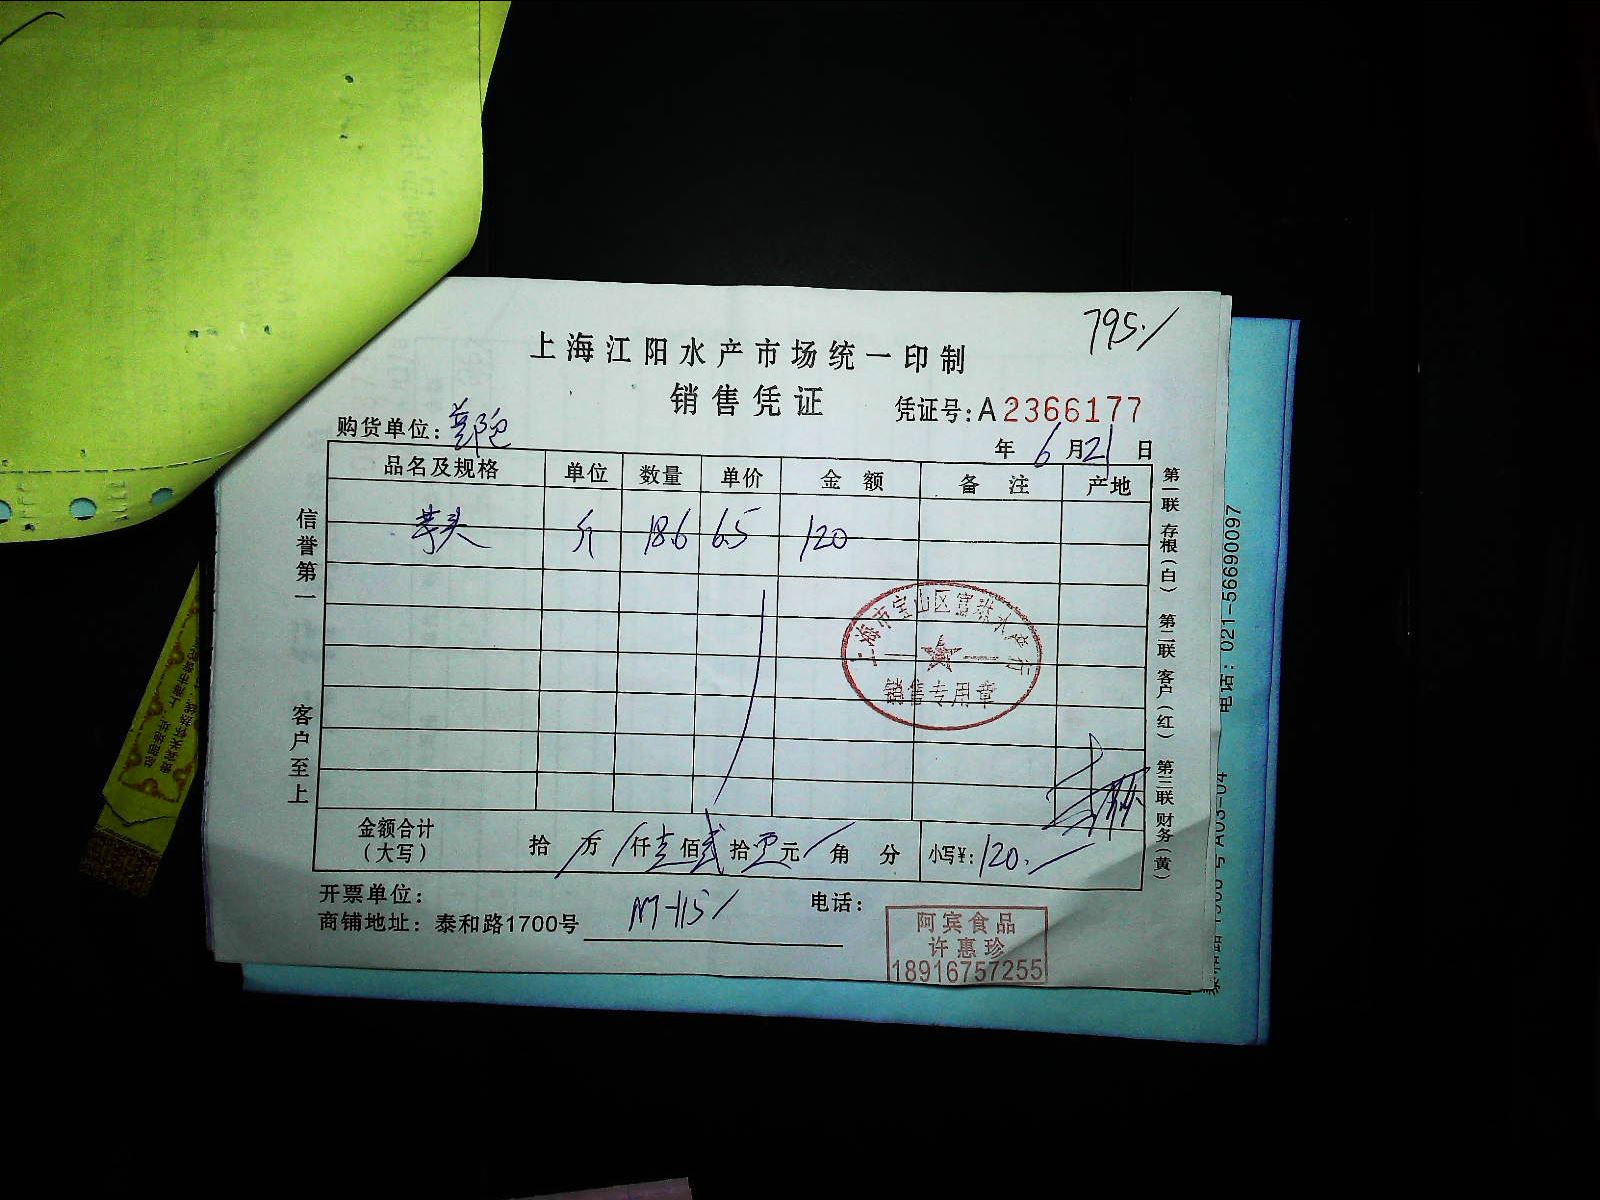 795./
上海江阳水产市场统一印制
销售凭证
凭证号:A2366177
购货单位:
年 6月21日
品名及规格 单位 数量 单价 金额 备注 产地
芋头 斤 18.6 6.5 120
信誉第一
客户至上
上海市宝山区富 水产行
销售专用章
金额合计
(大写)
拾/万/仟壹佰贰拾零元/角 分 小写¥:120./
开票单位:
电话:
商铺地址:泰和路1700号 M-115/
阿宾食品
许惠珍
18916757255
第一联 存根(白) 第二联 客户(红) 第三联 财务(黄)
电话:021-56690097